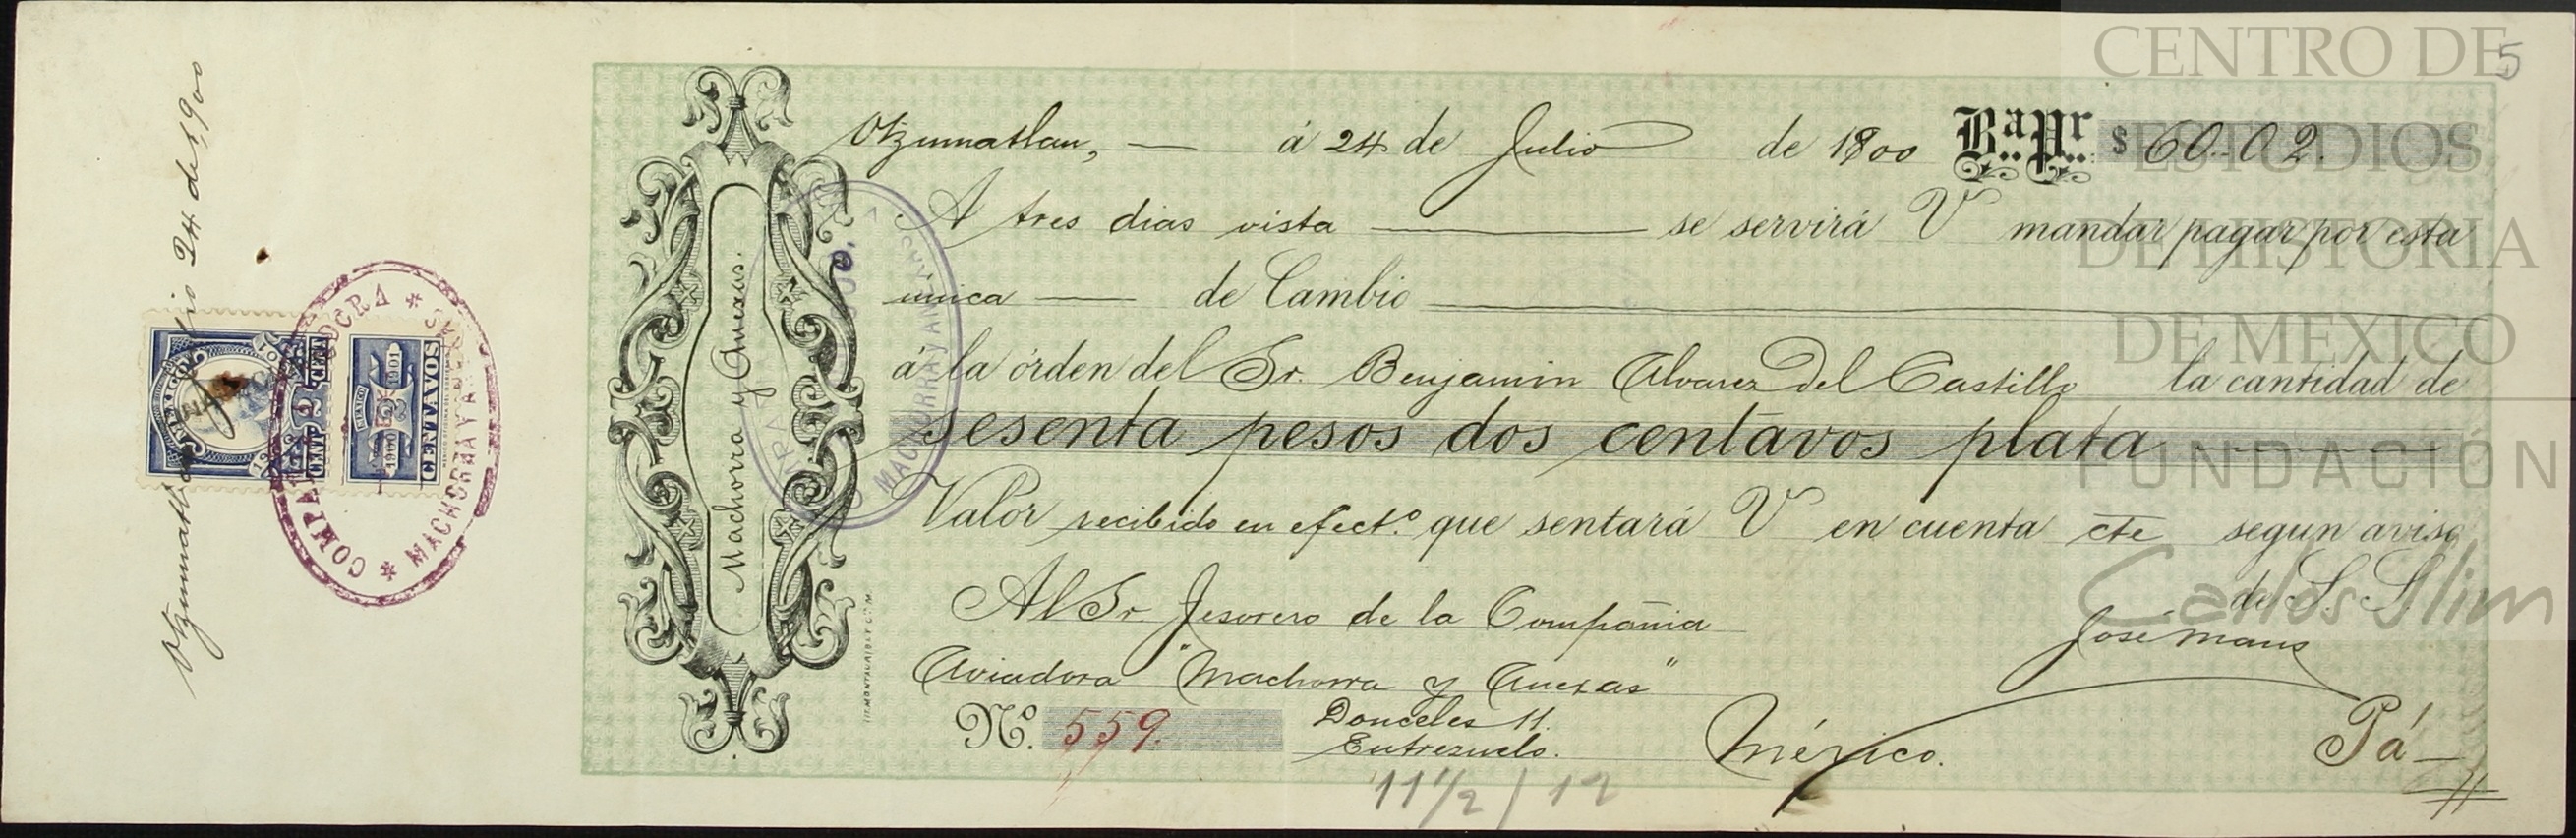 Otzumatlan, á 24 de Julio de 1900 Ba. Pr. $ 60.02.
A tres dias vista se servirá V mandar pagar por esta
unica de Cambio
á la órden del Sr. Benjamin Alvarez Del Castillo la cantidad de
sesenta pesos dos centavos plata
Valor recibido en efect.º que sentará V en cuenta cte segun aviso
de S. S.
Al Sr. Tesorero de la Compañia
Aviadora "Machorra y Anexas"
José Maus
Nº. 559.
Donceles 11.
Entresuelo.
México.
Pá
11 1/2 / 12
Machorra y Anexas.
LIT. MONTAURIOL Y COM.
Otzumatlan 24 de 1900
MEXICO
2
CENT
1900 1901
CENTAVOS
MACHORRA Y ANEXAS
5
CENTRO DE
ESTUDIOS
DE HISTORIA
DE MEXICO
FUNDACIÓN
Carlos Slim